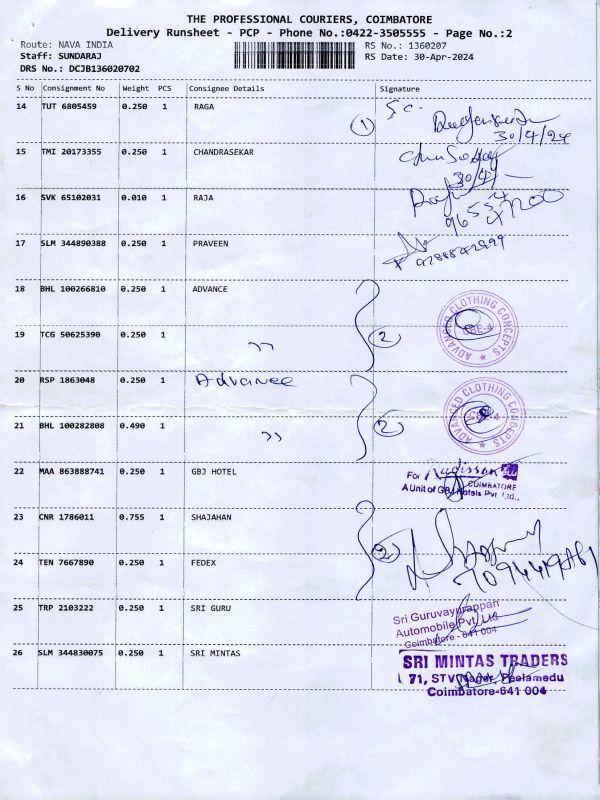 THE PROFESSIONAL COURIERS, COIMBATORE
Delivery Runsheet - PCP - Phone No.:0422-3505555 - Page No.:2
Route: NAVA INDIA RS No.: 1360207
Staff: SUNDARAJ RS Date: 30-Apr-2024
DRS No.: DCJB136020702
S No Consignment No Weight PCS Consignee Details Signature
14 TUT 6805459 0.250 1 RAGA
1 30/4/24
15 TMI 20173355 0.250 1 CHANDRASEKAR
30/4/
16 SVK 65102031 0.010 1 RAJA
17 SLM 344890388 0.250 1 PRAVEEN
18 BHL 100266810 0.250 1 ADVANCE
ADVANCED CLOTHING CONCEPTS
CBE-4
19 TCG 50625390 0.250 1 " 2
20 RSP 1863048 0.250 1 Advance
ADVANCED CLOTHING CONCEPTS
CBE-4
21 BHL 100282808 0.490 1 " 2
22 MAA 863888741 0.250 1 GBJ HOTEL
For Radisson
COIMBATORE
A Unit of GBJ Hotels Pvt. Ltd.,
23 CNR 1786011 0.755 1 SHAJAHAN
2
24 TEN 7667890 0.250 1 FEDEX
25 TRP 2103222 0.250 1 SRI GURU
Sri Guruvayurappan
Automobile Pvt. Ltd
Coimbatore - 641 004
26 SLM 344830075 0.250 1 SRI MINTAS
SRI MINTAS TRADERS
71, STV Nagar, Peelamedu
Coimbatore-641 004